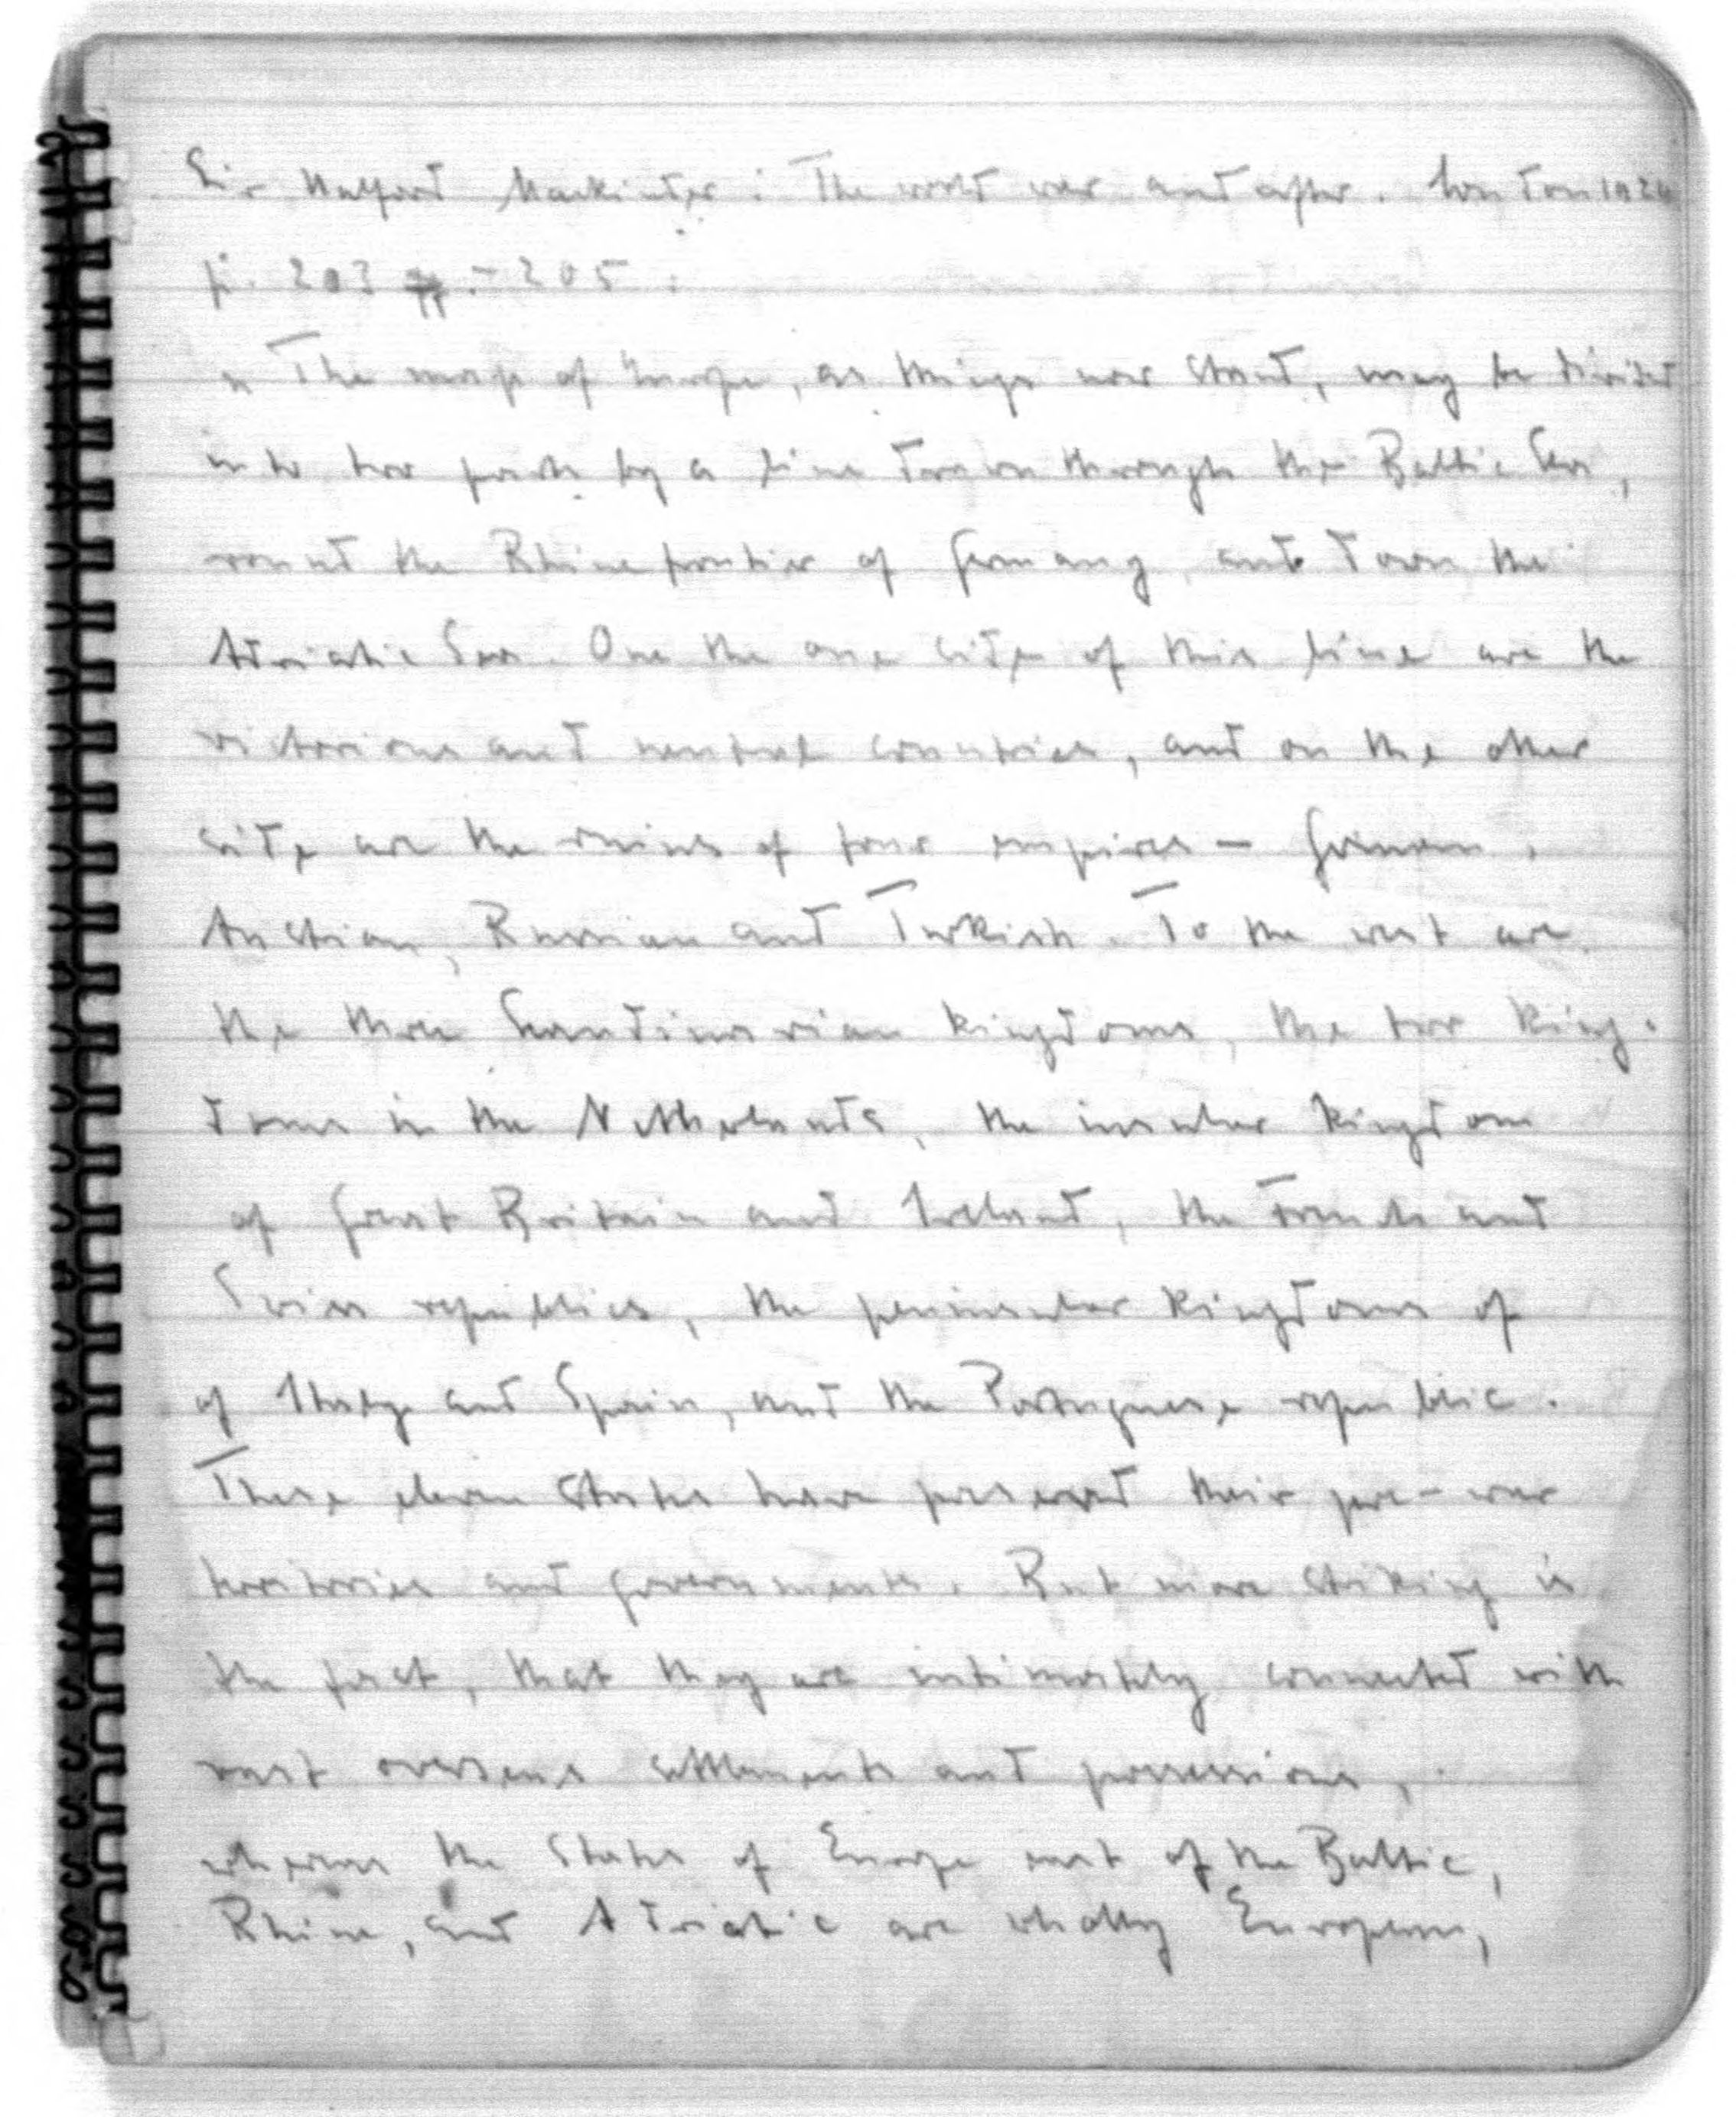 Sir Halford Mackinder: The world war and after. London 1924
p. 203 - 205:
„ The map of Europe, as things now stand, may be divided
into two parts by a line drawn through the Baltic Sea,
round the Rhine frontier of Germany, and down the
Adriatic Sea. One the one side of this line are the
victorious and neutral countries, and on the other
side are the ruins of four empires — German,
Austrian, Russian and Turkish. To the west are
the three Scandinavian kingdoms, the two king-
doms in the Netherlands, the insular kingdom
of Great Britain and Ireland, the French and
Swiss republics, the peninsular kingdoms of
of Italy and Spain, and the Portuguese republic.
These eleven States have preserved their pre-war
territories and governments. But more striking is
the fact, that they are intimately connected with
vast overseas settlements and possessions,
whereas the States of Europe east of the Baltic,
Rhine, and Adriatic are wholly European,